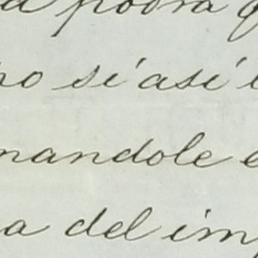 a podra q
no si así
nandole e
a del im